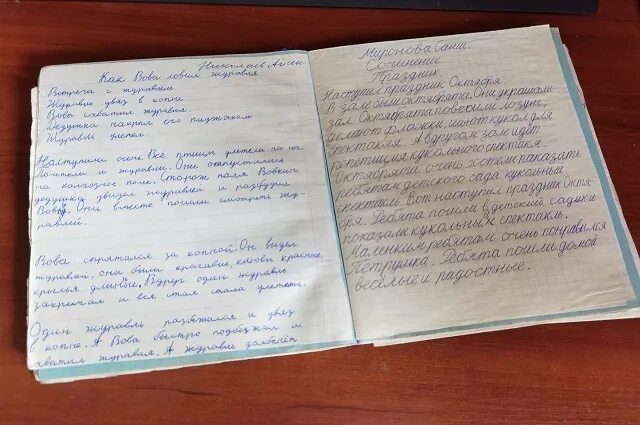 Николаев Айсен
Как Вова ловил журавля
Встреча с журавлём
Журавль увяз в копне
Вова схватил журавля
Дедушка накрыл его пиджаком
Журавль улетел.
Наступила осень. Все птицы улетели на юг.
Полетели и журавли. Они опустились
на колхозное поле. Сторож поля Вовкин
дедушка увидел журавлей и разбудил
Вову. Они вместе пошли смотреть жу-
равлей.
Вова спрятался за копной. Он видел
журавлей, они были красивые, клювы красные,
крылья длинные. Вдруг один журавль
закричал и вся стая стала улетать.
Один журавль разбежался и увяз
в копне. А Вова быстро подбежал и
схватил журавля. А журавль долбает
Миронова Саша.
Сочинение
Праздник
Наступил праздник Октября.
В зале были октябрята. Они украшали
зал. Октябрята повесили лозунг,
делают флажки, шьют кукол для
спектакля. А в другом зале идёт
репетиция кукольного спектакля.
Октябрята очень хотели показать
ребятам детского сада кукольный
спектакль. Вот наступил праздник Октя-
бря. Ребята пошли в детский садик и
показали кукольный спектакль.
Маленьким ребятам очень понравился
Петрушка. Ребята пошли домой
весёлые и радостные.